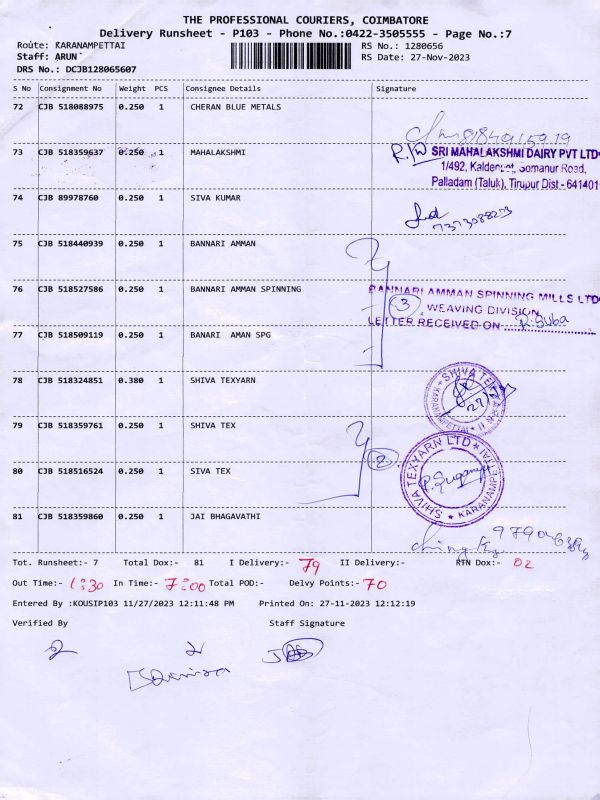 THE PROFESSIONAL COURIERS, COIMBATORE
Delivery Runsheet - P103 - Phone No.:0422-3505555 - Page No.:7
Route: KARANAMPETTAI RS No.: 1280656
Staff: ARUN RS Date: 27-Nov-2023
DRS No.: DCJB128065607
S No Consignment No Weight PCS Consignee Details Signature
72 CJB 518088975 0.250 1 CHERAN BLUE METALS
73 CJB 518359637 0.250 1 MAHALAKSHMI SRI MAHALAKSHMI DAIRY PVT LTD
1/492, Somanur Road,
Palladam (Taluk), Tirupur Dist - 641401
74 CJB 89978760 0.250 1 SIVA KUMAR
75 CJB 518440939 0.250 1 BANNARI AMMAN
76 CJB 518527586 0.250 1 BANNARI AMMAN SPINNING BANNARI AMMAN SPINNING MILLS LTD
3 WEAVING DIVISION
LETTER RECEIVED ON R. Suba
77 CJB 518509119 0.250 1 BANARI AMAN SPG
78 CJB 518324851 0.380 1 SHIVA TEXYARN
79 CJB 518359761 0.250 1 SHIVA TEX
80 CJB 518516524 0.250 1 SIVA TEX 2
SHIVA TEXYARN LTD KARANAMPETTAI
81 CJB 518359860 0.250 1 JAI BHAGAVATHI
Tot. Runsheet:- 7 Total Dox:- 81 I Delivery:- 79 II Delivery:- RTN Dox:- 02
Out Time:- 1:30 In Time:- 7:00 Total POD:- Delvy Points:- 70
Entered By :KOUSIP103 11/27/2023 12:11:48 PM Printed On: 27-11-2023 12:12:19
Verified By Staff Signature